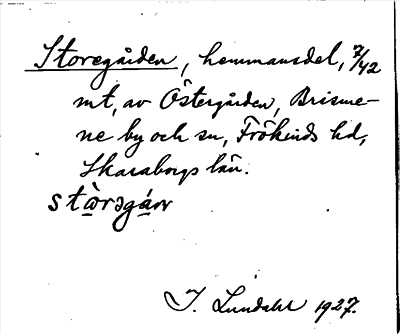 Storegården, hemmansdel, 7/42
mt, av Östergården, Brisme-
ne by och sn, Frökinds hd,
Skaraborgs län.
stòrəgárn
I. Lundahl 1927.